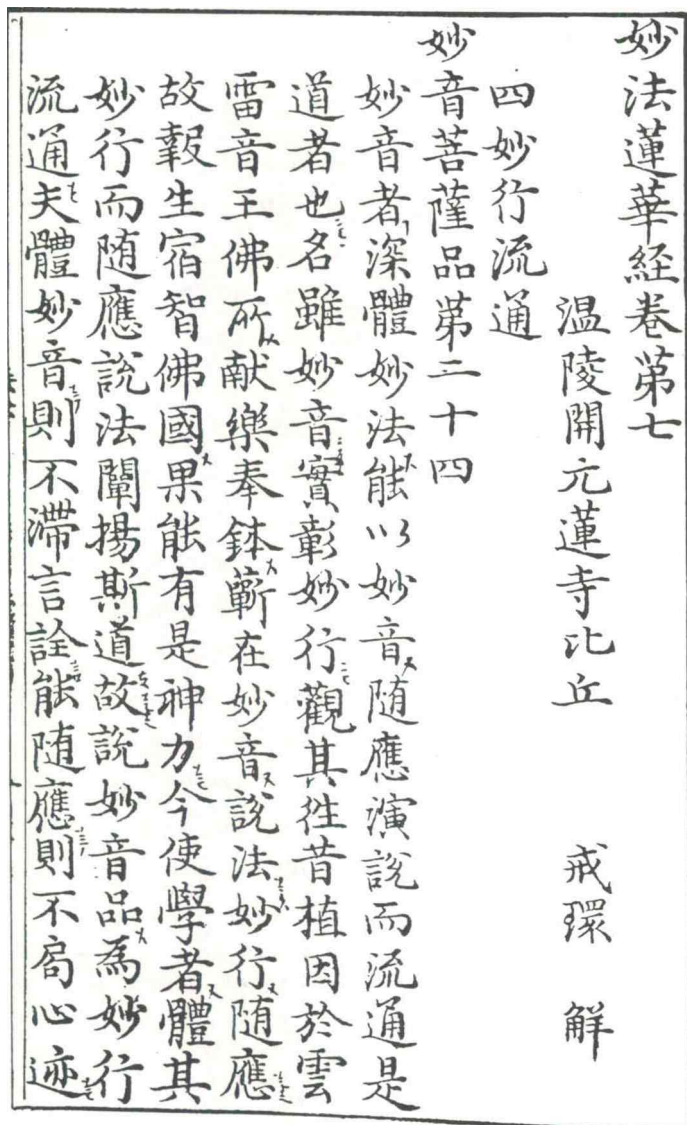 妙法蓮華経巻第七
温陵開元蓮寺比丘 戒環 解
四妙行流通
妙音菩薩品第二十四
妙音者深體妙法能以妙音随應演說而流通是
道者也名雖妙音實彰妙行觀其徃昔植因於雲
雷音王佛所献樂奉鉢蘄在妙音說法妙行随應
故報生宿智佛國果能有是神力今使學者體其
妙行而随應說法闡揚斯道故說妙音品爲妙行
流通夫體妙音則不滞言詮能随應則不局心迹